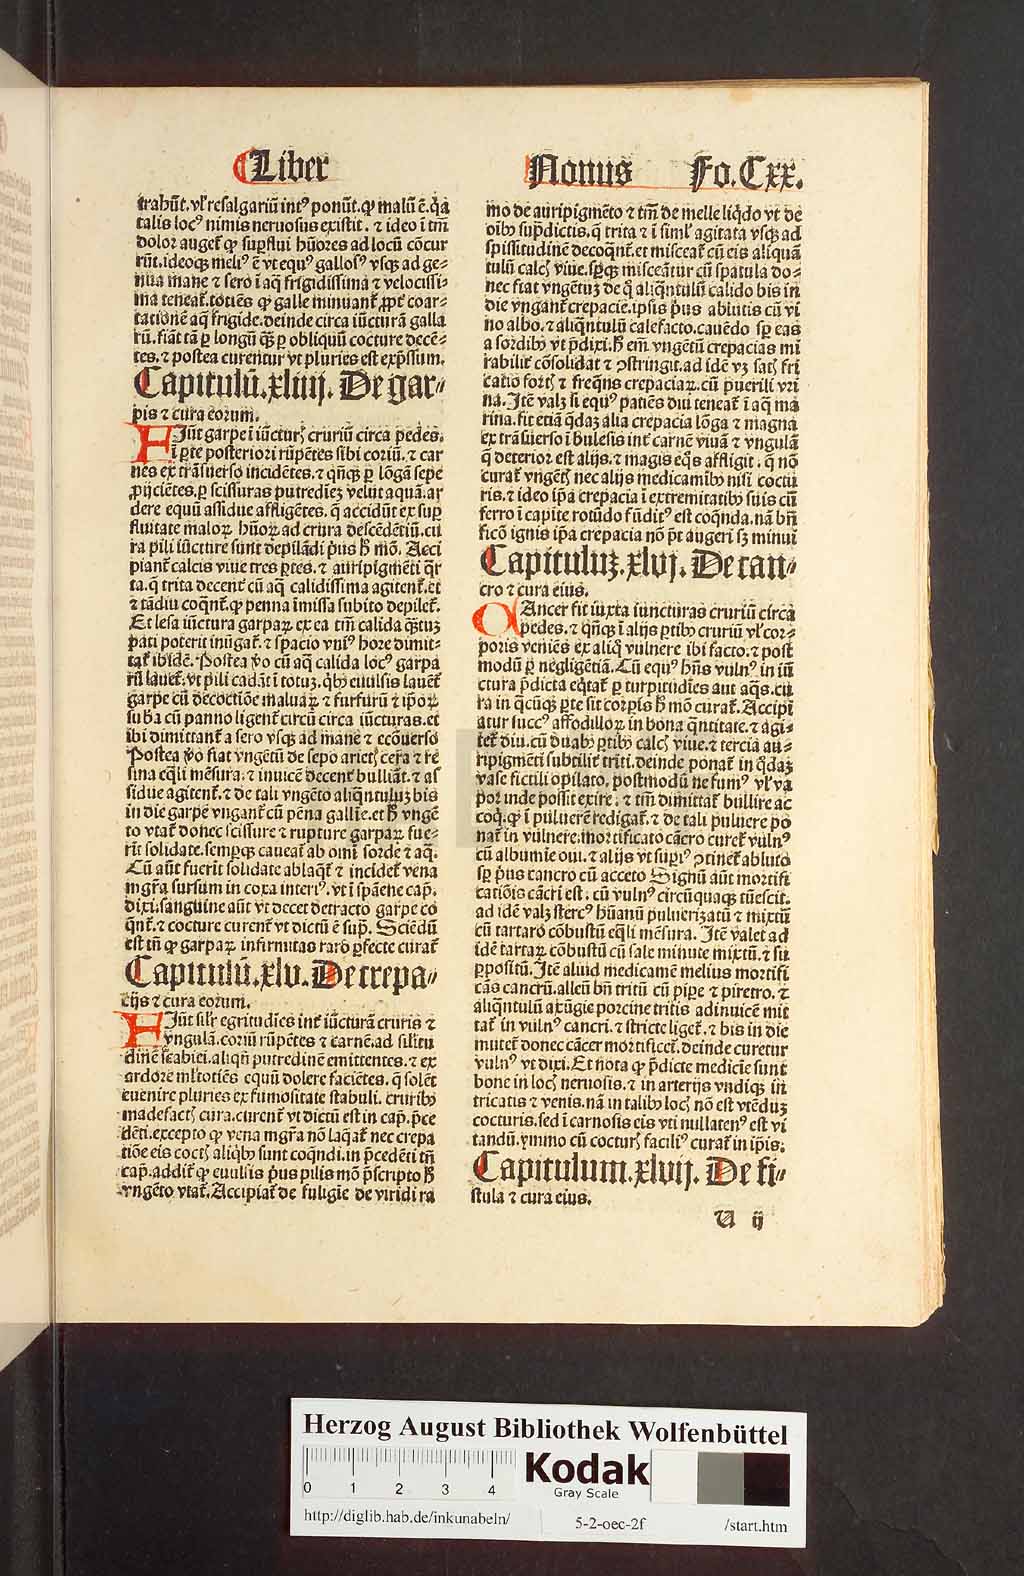 Liber Nonus Fo. Cxx.
trahūt. vl' resalgariū intꝰ ponūt. qꝫ malū ē. q̄a
talis locꝰ nimis neruosus existit. ⁊ ideo ī tm̄
dolor auget᷑ ꝙ suꝑflui hūores ad locū cōcur
rūt. ideoqꝫ meliꝰ ē vt equꝰ gallosꝰ vsqꝫ ad ge⸗
nua mane ⁊ sero ī aq̄ frigidissima ⁊ velocissi⸗
ma teneat᷑. totiēs ꝙ galle minuant᷑ ꝓpt᷑ coar⸗
tationē aq̄ frigide. deinde circa iūcturā galla
rū. fiāt tā ꝑ longū q̄ꝫ ꝑ obliquū cocture decē⸗
tes. ⁊ postea curentur vt pluries est exp̄ssum.
Capitulū. xliiij. De gar⸗
pis ⁊ cura eorum.
FIūt garpe ī iūcturꝭ cruriū circa pedes.
ī ꝑte posteriori rūpētes sibi coriū. ⁊ car
nes ex trāsuerso incidētes. ⁊ qn̄qꝫ ꝑ lōgā sepe
ꝓijciētes. ꝑ scissuras putrediēꝫ velut aquā. ar
dere equū assidue affligētes. q̄ accidūt ex suꝑ
fluitate maloꝝ hūoꝝ ad crura descēdētiū. cu
ra pili iūcture sunt depilādi p̄us h̄ mō. Acci
piant᷑ calcis viue tres ꝑtes. ⁊ auripigmēti q̄r
ta. q̄ trita decent᷑ cū aq̄ calidissima agitent᷑. et
⁊ tādiu coq̄nt᷑. ꝙ penna īmissa subito depilet᷑.
Et lesa iūctura garpaꝝ ex ea tm̄ calida q̄ꝫtuꝫ
pati poterit inūgat᷑. ⁊ spacio vniꝰ hore dimit⸗
tat᷑ ibidē. Postea ṽo cū aq̄ calida locꝰ garpa
rū lauet᷑. vt pili cadāt ī totuꝫ. q̄bꝫ euulsis lauet᷑
garpe cū decoctiōe maluaꝝ ⁊ furfurū ⁊ ip̄oꝝ
suba cū panno ligent᷑ circū circa iūcturas. et
ibi dimittant᷑ a sero vsqꝫ ad mane ⁊ ecōuerso
Postea ṽo fiat vngētū de sepo arietꝭ cera ⁊ re
sina eq̄li mēsura. ⁊ inuicē decent᷑ bulliāt. ⁊ as
sidue agitent᷑. ⁊ de tali vngēto aliq̄ntuluꝫ bis
in die garpe vngant᷑ cū pēna gallie. et h̄ vngē
to vtat᷑ donec scissure ⁊ rupture garpaꝝ fue⸗
rīt solidate. semꝑqꝫ caueat᷑ ab omī sorde ⁊ aq̄.
Cū aūt fuerīt solidate ablaqt᷑ ⁊ incidet᷑ vena
mgr̄a sursum in coxa interiꝰ. vt ī spāene cap̄.
dixi. sanguine aūt vt decet detracto garpe co
q̄nt᷑. ⁊ cocture curent᷑ vt dictū ē sup̄. Sciēdū
est tn̄ ꝙ garpaꝝ infirmitas raro ꝑfecte curat᷑
Capitulū. xlv. De crepa⸗
cijs ⁊ cura eorum.
FIūt sil'r egritudīes int᷑ iūcturā cruris ⁊
vngulā. coriū rūpētes ⁊ carnē. ad sil'itu
dinē scabiei. aliqn̄ putredinē emittentes. ⁊ ex
ardore ml'totiēs equū dolere faciētes. q̄ solēt
euenire pluries ex fumositate stabuli. cruribꝫ
madefactꝭ cura. curent᷑ vt dictū est in cap̄. p̄ce
dēti. excepto ꝙ vena mgr̄a nō laq̄at᷑ nec crepa
tiōe eis coctꝭ aliq̄bꝫ sunt coq̄ndi. in p̄cedēti tn̄
cap̄. addit᷑ ꝙ euulsis p̄us pilis mō p̄scripto h̄
vngēto vtat᷑. Accipiat᷑ de fuligie de viridi ra
mo de auripigmēto ⁊ tm̄ de melle liq̄do vt de
oībꝫ sup̄dictis. q̄ trita ⁊ ī siml' agitata vsqꝫ ad
spissitudinē decoq̄nt᷑. et misceat᷑ cū eis aliquā
tulū calcꝭ viue. sꝑqꝫ misceātur cū spatula do⸗
nec fiat vngētuꝫ de q̄ aliq̄ntulū calido bis in
die vngant᷑ crepacie. ipsis p̄us ablutis cū vi
no albo. ⁊ aliq̄ntulū calefacto. cauēdo sꝑ eas
a sordibꝫ vt p̄dixi. h̄ em̄ vngētū crepacias mi
rabilit᷑ cōsolidat ⁊ ꝯstringit. ad idē vꝫ satꝭ fri
catio fortꝭ ⁊ freq̄ns crepaciaꝝ. cū puerili vri
na. Itē valꝫ si equꝰ patiēs diu teneat᷑ ī aq̄ ma
rina. fit etiā q̄daꝫ alia crepacia lōga ⁊ magna
ex trāsuerso ī bulesis int᷑ carnē viuā ⁊ vngulā
q̄ deterior est alijs. ⁊ magis eq̄s affligit. q̄ nō
curat᷑ vngētꝭ nec alijs medicamībꝫ nisi coctu
ris. ⁊ ideo ip̄a crepacia ī extremitatibꝫ suis cū
ferro ī capite rotūdo fūditꝰ est coq̄nda. nā bn̄
ficō ignis ip̄a crepacia nō p̄t augeri sꝫ minui
Capituluꝫ. xlvj. De can⸗
cro ⁊ cura eius.
CAncer fit iuxta iuncturas cruriū circa
pedes. ⁊ qn̄qꝫ ī alijs ꝑtibꝫ cruriū vl' cor⸗
poris veniēs ex aliq̄ vulnere ibi facto. ⁊ post
modū ꝑ negligētiā. Cū equꝰ hn̄s vulnꝰ in iū
ctura p̄dicta eq̄tat᷑ ꝑ turpitudīes aut aq̄s. cu
ra in q̄cūqꝫ ꝑte sit corꝑis h̄ mō curat᷑. Accipi
atur succꝰ affodilloꝝ in bona q̄ntitate. ⁊ agi⸗
tet᷑ diu. cū duabꝫ ꝑtibꝫ calcꝭ viue. ⁊ tercia au⸗
ripigmēti subtilit᷑ triti. deinde ponat᷑ in q̄daꝫ
vase fictili opilato. postmodū ne fumꝰ vl' va
por inde possit exire. ⁊ tm̄ dimittat᷑ bullire ac
coq̄. ꝙ ī puluerē redigat᷑. ⁊ de tali puluere po
nat᷑ in vulnere. mortificato cācro curet᷑ vulnꝰ
cū albumīe oui. ⁊ alijs vt supiꝰ ꝯtinet᷑ abluto
sꝑ p̄us cancro cū acceto Signū aūt mortifi
catiōis cācri est. cū vulnꝰ circūquaqꝫ tūescit.
ad idē valꝫ stercꝰ hūanū pulueriꝫatū ⁊ mixtū
cū tartaro cōbustū eq̄li mēsura. Itē valet ad
idē tartaꝝ cōbustū cū sale minute mixtū. ⁊ su
ꝑpositū. Itē aliud medicamē melius mortifi
cās cancrū. alleū bn̄ tritū cū piꝑe ⁊ piretro. ⁊
aliq̄ntulū axūgie porcine tritis adinuicē mit
tat᷑ in vulnꝰ cancri. ⁊ stricte liget᷑. ⁊ bis in die
mutet᷑ donec cācer mortificet᷑. deinde curetur
vulnꝰ vt dixi. Et nota ꝙ p̄dicte medicīe sunt
bone in locꝭ neruosis. ⁊ in arterijs vndiqꝫ in
tricatis ⁊ venis. nā in talibꝫ locꝭ nō est vtēduꝫ
cocturis. sed ī carnosis eis vti nullatenꝰ est vi
tandū. ymmo cū cocturꝭ faciliꝰ curat᷑ in ip̄is.
Capitulum. xlvij. De fi⸗
stula ⁊ cura eius.
U ij
Herzog August Bibliothek Wolfenbüttel
0 1 2 3 4
Kodak
Gray Scale
http://diglib.hab.de/inkunabeln/ 5-2-oec-2f /start.htm